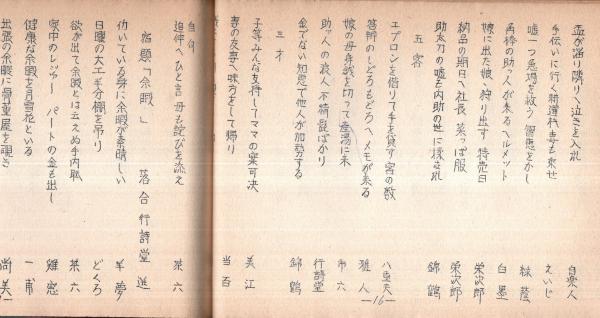 盃が廻り隣りへ泣きを入れ 自衆人
手伝いに行く特選村妻も乗せ えいじ
嘘一つ急場を救う智恵をかし 緑蔭
角棒の助っ人が来るヘルメット 白墨
嫁に出た娘へ狩り出す特売日 栄次郎
納品の期日へ社長菜っぱ服 栄次郎
助太刀の嘘も内助の世に揉まれ 錦鶴
五客
エプロンを借りて手を貸す客の数 八重夫
答辞のしどろもどろへメモが来る 雅人
娘の母身銭を切って産湯に来 市六
助ッ人の浪人不精髭ばかり 行詩堂
金でない知恵で他人が加勢する 錦鶴
三才
子等みんな支持してママの案可決 美江
妻の友妻へ味方をして帰り 当百
自句
迫仲へひと言母も詫びを添え 茶六
宿題「余暇」 落合行詩堂選
働いている身に余暇が素晴しい 羊夢
日曜の大工手分棚を吊り どくろ
欲が出て余暇とは云えぬ手内職 茶六
喫中のレジャーパートの金も出し 雅窓
健康な余暇を月雪花という 一甫
出張の余暇に骨董屋を覗き 尚美
—16—